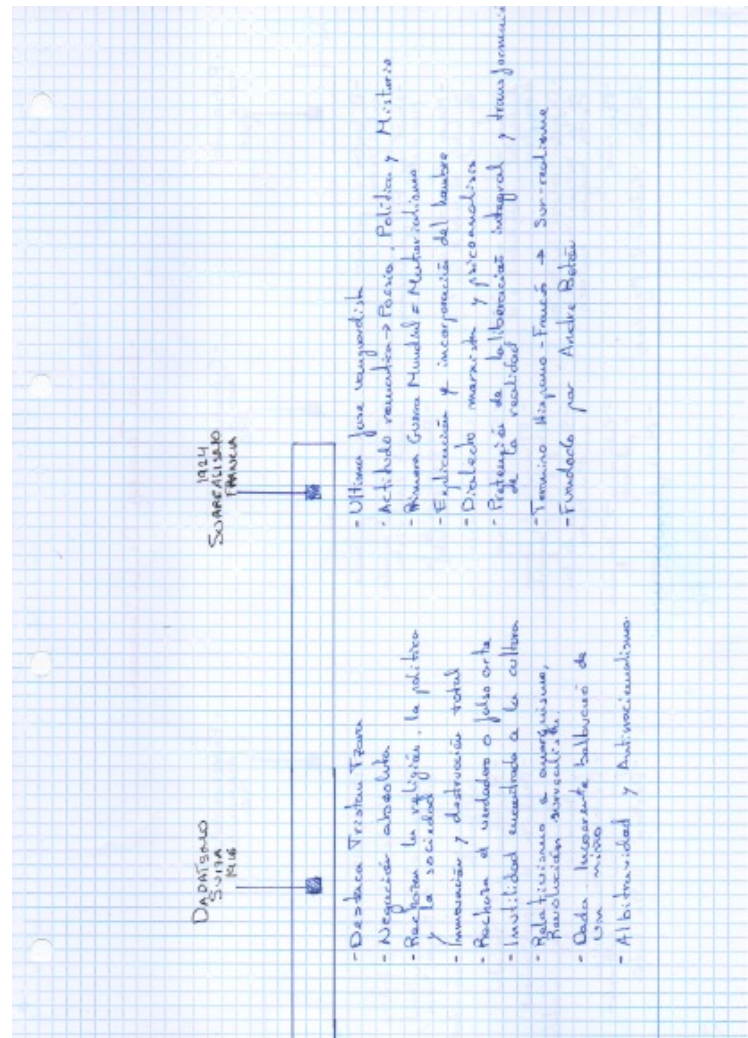 DADAÍSMO
SUIZA
1916
- Destaca Tristan Tzara
- Negación absoluta
- Rechazan la religión, la política
y la sociedad
- Innovación y destrucción total
- Rechaza el verdadero o falso arte
- Inutilidad encontrada a la cultura
- Relativismo e anarquismo,
Revolución surrealista.
- Dada. Incoerente balbuceó de
un niño
- Albitraridad y Antinacionalismo
1924
SURREALISMO
FRANCIA
- Ultima fase vanguardista
- Actitudo romantica → Poesia, Politica y Misterio
- Primera Guerra Mundial = Materialismo
- Explicación y incorporación del hombre
- Dialecto marxista y psicoanalisis
- Pretención de la liberación integral y transformación
de la realidad
- Termino Hispano-Francó → Sur-realisme
- Fundado por Andre Botón